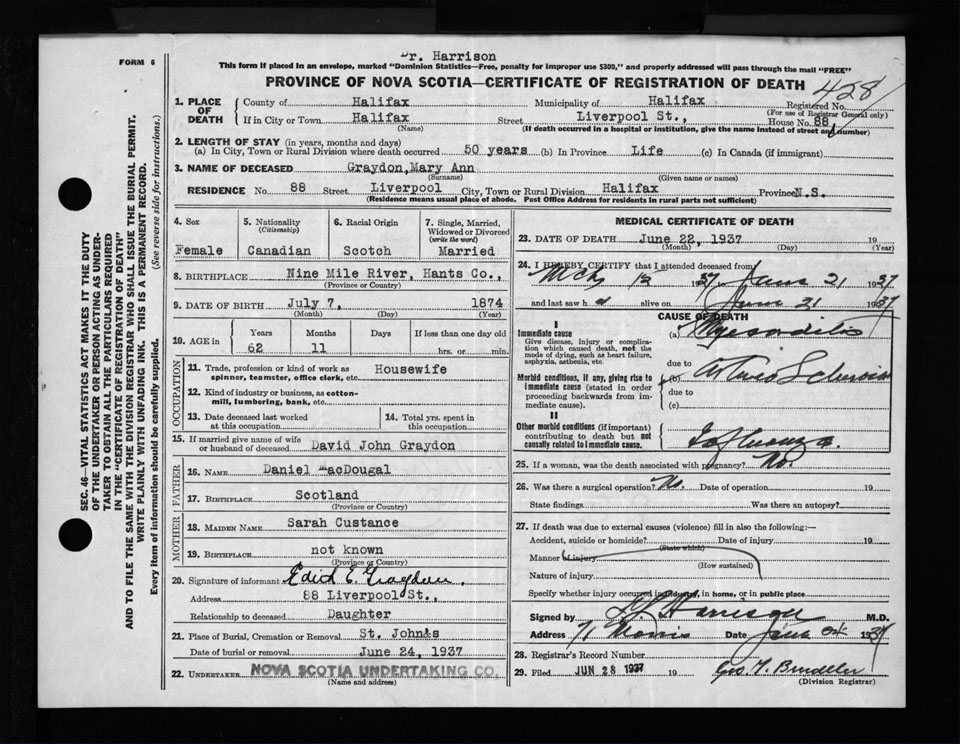 FORM 6
Dr. Harrison
This form if placed in an envelope, marked "Dominion Statistics—Free, penalty for improper use $300," and properly addressed will pass through the mail "FREE"
PROVINCE OF NOVA SCOTIA—CERTIFICATE OF REGISTRATION OF DEATH
428
SEC. 46—VITAL STATISTICS ACT MAKES IT THE DUTY
OF THE UNDERTAKER OR PERSON ACTING AS UNDER-
TAKER TO OBTAIN ALL THE PARTICULARS REQUIRED
IN THE "CERTIFICATE OF REGISTRATION OF DEATH"
AND TO FILE THE SAME WITH THE DIVISION REGISTRAR WHO SHALL ISSUE THE BURIAL PERMIT.
WRITE PLAINLY WITH UNFADING INK. THIS IS A PERMANENT RECORD.
Every item of information should be carefully supplied. (See reverse side for instructions.)
1. PLACE OF DEATH
County of Halifax Municipality of Halifax Registered No.
(For use of Registrar General only)
If in City or Town Halifax Street Liverpool St., House No. 88
(Name) (If death occurred in a hospital or institution, give the name instead of street and number)
2. LENGTH OF STAY (in years, months and days)
(a) In City, Town or Rural Division where death occurred 50 years (b) In Province Life (c) In Canada (if immigrant)
3. NAME OF DECEASED Graydon, Mary Ann
(Surname) (Given name or names)
RESIDENCE No. 88 Street Liverpool City, Town or Rural Division Halifax Province N.S.
(Residence means usual place of abode. Post Office Address for residents in rural parts not sufficient)
4. Sex
Female
5. Nationality
(Citizenship)
Canadian
6. Racial Origin
Scotch
7. Single, Married,
Widowed or Divorced
(write the word)
Married
8. BIRTHPLACE Nine Mile River, Hants Co.,
(Province or Country)
9. DATE OF BIRTH July 7, 1874
(Month) (Day) (Year)
10. AGE in
Years Months Days If less than one day old
62 11 hrs. or min.
OCCUPATION
11. Trade, profession or kind of work as
spinner, teamster, office clerk, etc. Housewife
12. Kind of industry or business, as cotton-
mill, lumbering, bank, etc.
13. Date deceased last worked
at this occupation
14. Total yrs. spent in
this occupation
15. If married give name of wife
or husband of deceased David John Graydon
FATHER
16. NAME Daniel MacDougal
17. BIRTHPLACE Scotland
(Province or Country)
MOTHER
18. MAIDEN NAME Sarah Custance
19. BIRTHPLACE not known
(Province or Country)
20. Signature of informant Edith E. Graydon.
Address 88 Liverpool St.,
Relationship to deceased Daughter
21. Place of Burial, Cremation or Removal St. John's
Date of burial or removal June 24, 1937
22. UNDERTAKER NOVA SCOTIA UNDERTAKING CO.
(Name and address)
MEDICAL CERTIFICATE OF DEATH
23. DATE OF DEATH June 22, 1937 19
(Month) (Day) (Year)
24. I HEREBY CERTIFY that I attended deceased from
1937 June 21 1937
and last saw h alive on June 21 1937
CAUSE OF DEATH
I
Immediate cause
Give disease, injury or complica-
tion which caused death, not the
mode of dying, such as heart failure,
asphyxia, asthenia, etc.
(a) Myocarditis
due to
Morbid conditions, if any, giving rise to
immediate cause (stated in order
proceeding backwards from im-
mediate cause).
(b) Arterio Sclerosis
due to
(c)
II
Other morbid conditions (if important)
contributing to death but not
causally related to immediate cause.
Influenza
25. If a woman, was the death associated with pregnancy? No.
26. Was there a surgical operation? No. Date of operation 19
State findings Was there an autopsy?
27. If death was due to external causes (violence) fill in also the following:—
Accident, suicide or homicide? Date of injury 19
(State which)
Manner of injury
(How sustained)
Nature of injury
Specify whether injury occurred in industry, in home, or in public place
Signed by Harrison M.D.
Address 71 Morris Date June 1937
28. Registrar's Record Number
29. Filed JUN 28 1937 19
(Division Registrar)